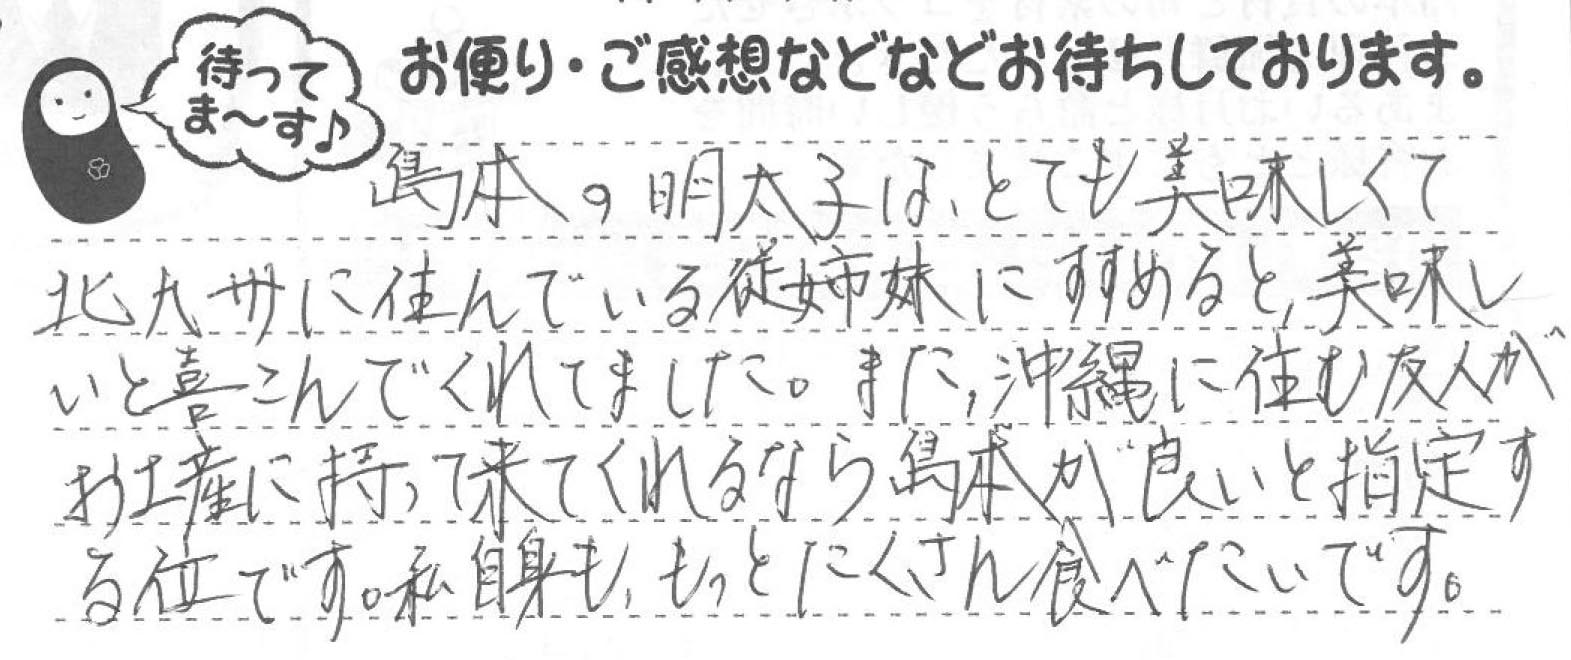 待って
ま〜す♪
お便り・ご感想などなどお待ちしております。
島本の明太子は、とても美味しくて
北九州に住んでいる従姉妹にすすめると、美味し
いと喜こんでくれてました。また、沖縄に住む友人が
お土産に持って来てくれるなら島本が良いと指定す
る位です。私自身も、もっとたくさん食べたいです。